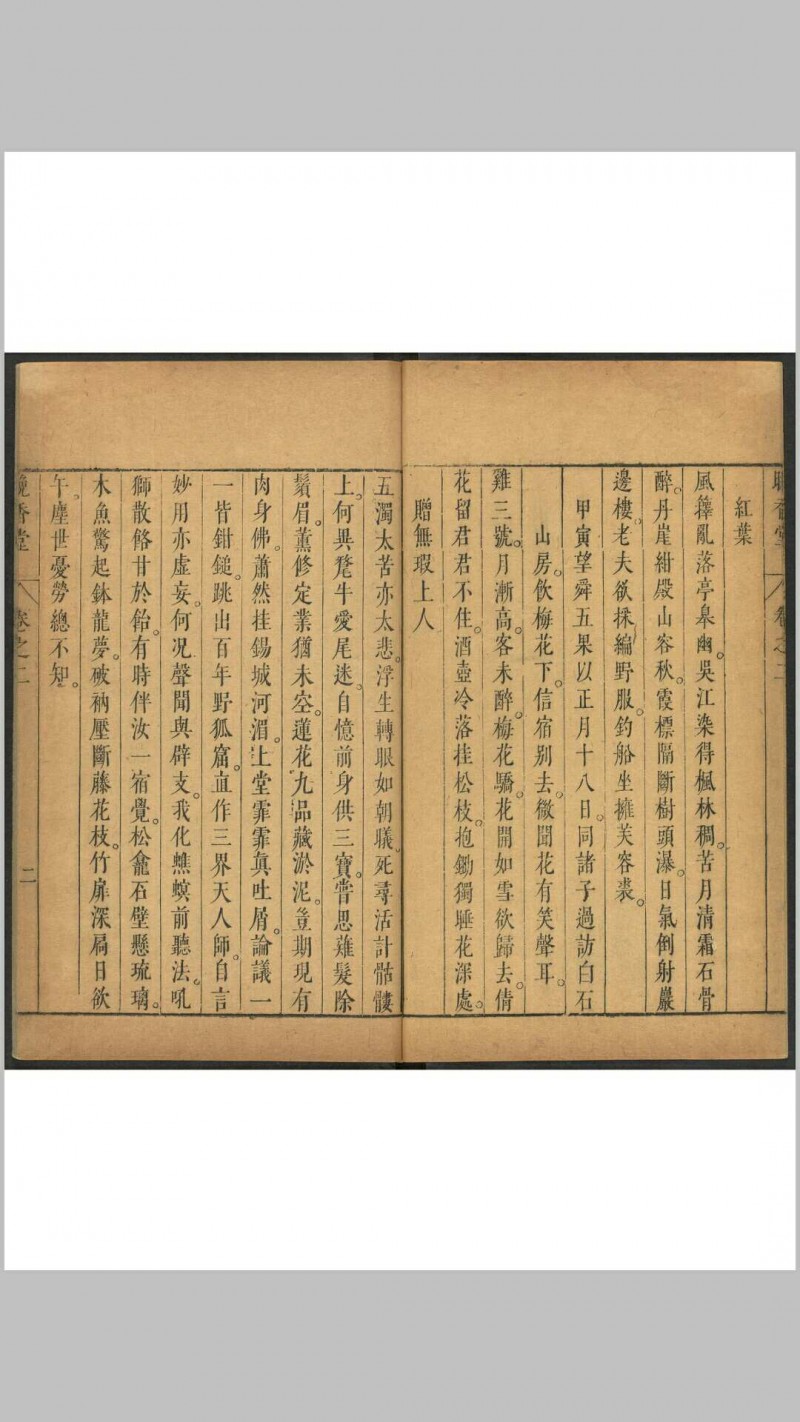 晚香堂 卷之二
紅葉
風籜亂落亭皋幽。吳江染得楓林稠。苦月清霜石骨
醉。丹崖紺殿山容秋。霞標隔斷樹頭瀑。日氣倒射巖
邊樓。老夫欲採編野服。釣船坐擁芙容裘。
甲寅望舜五果以正月十八日。同諸子過訪白石
山房。飲梅花下。信宿别去。微聞花有笑聲耳。
雞三號。月漸高。客未醉。梅花驕。花開如雪欲歸去。倩
花留君君不住。酒壺冷落挂松枝。抱鋤獨睡花深處。
贈無瑕上人
五濁太苦亦太悲。浮生轉眼如朝曦。死尋活計骷髏
上。何異氂牛愛尾迷。自憶前身供三寶。嘗思薙髮除
鬚眉。薰修定業猶未空。蓮花九品藏淤泥。豈期現有
肉身佛。蕭然挂錫城河湄。上堂霏霏真吐屑。論議一
一皆鉗鎚。跳出百年野狐窟。直作三界天人師。自言
妙用亦虛妄。何况聲聞與辟支。我化蟭螟前聽法。吼
獅散絡甘於飴。有時伴汝一宿覺。松龕石壁懸琉璃。
木魚驚起鉢龍夢。破衲壓斷藤花枝。竹扉深扃日欲
午。塵世憂勞總不知。
晚香堂 卷之二 二